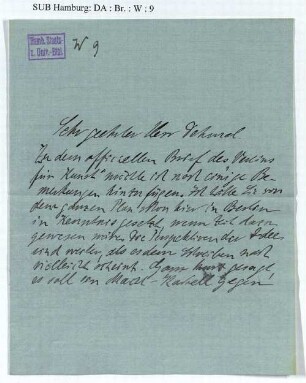 SUB Hamburg: DA : Br. : W : 9
Hamb. Staats-
u. Univ.-Bibl.
W 9
Sehr geehrter Herr Dehmel
Zu dem officiellen Brief des Vereins
für Kunst möchte ich noch einige Be-
merkungen hinzufügen. Ich hätte Sie von
dem ganzen Plan schon hier in Berlin
in Kenntnis gesetzt, wenn Zeit dazu
gewesen wäre. Die Perspektiven der Idee
sind weiter als es dem Schreiben nach
vielleicht scheint. Ganz kurz gesagt,
es soll ein gegen